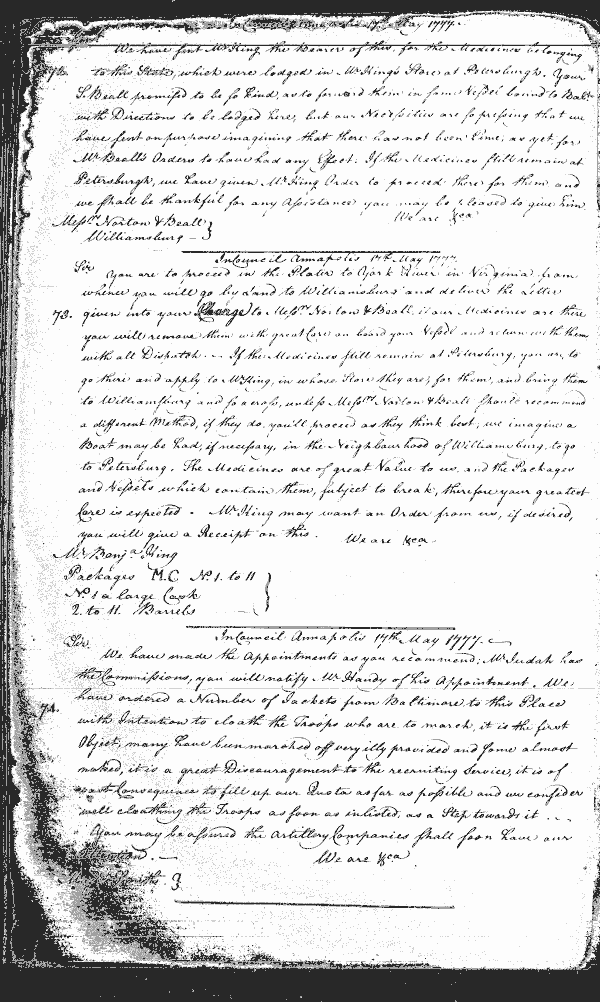 In Council Annapolis 17th May 1777.
72. We have sent Mr King the Bearer of this, for the Medicines belonging
to this State, which were lodged in Mr King's Store at Petersburgh. Your
S. Beall promised to be so kind, as to forward them in some Vessel bound to Balt
with Directions to be lodged here, but our Necessities are so pressing that we
have sent on purpose imagining that there has not been time, as yet for
Mr Beall's Orders to have had any Effect. If the Medicines still remain at
Petersburgh, we have given Mr King Order to proceed there for them and
we shall be thankful for any Assistance you may be pleased to give him
We are &ca
Messrs Norton & Beall }
Williamsburg —
In Council Annapolis 17th May 1777.
Sir
You are to proceed in the Plater to York River in Virginia from
whence you will go by Land to Williamsburg and deliver the Letter
73. given into your Charge to Messrs Norton & Beall, if our Medicines are there
you will remove them with great Care on board your Vessel and return with them
with all Dispatch. — If the Medicines still remain at Petersburg, you are, to
go there and apply to Mr King, in whose Store they are, for them, and bring them
to Williamsburg and so across, unless Messrs Norton & Beall should recommend
a different Method, if they do, you'll proceed as they think best, we imagine a
Boat may be had, if necessary, in the Neighbourhood of Williamsburg, to go
to Petersburg. The Medicines are of great Value to us, and the Packages
and Vessels which contain them, subject to break, therefore your greatest
Care is expected. Mr King may want an Order from us, if desired,
you will give a Receipt on this. We are &ca
Mr Benja King
Packages M.C No 1. to 11 }
No 1 a large Cask
2. to 11. Barrels —
In Council Annapolis 17th May 1777.
Sir.
We have made the Appointments as you recommend; Mr Judah has
the Commissions, you will notify Mr Handy of his Appointment. We
have ordered a Number of Jackets from Baltimore to this Place
74. with Intention to cloath the Troops who are to march, it is the first
Object, many have been marched off very illy provided and some almost
naked, it is a great Discouragement to the recruiting Service, it is of
vast Consequence to fill up our Quota as far as possible and we consider
well cloathing the Troops as soon as inlisted, as a Step towards it ...
You may be assured the Artillery Companies shall soon have our
Attention. — We are &ca
Smith }